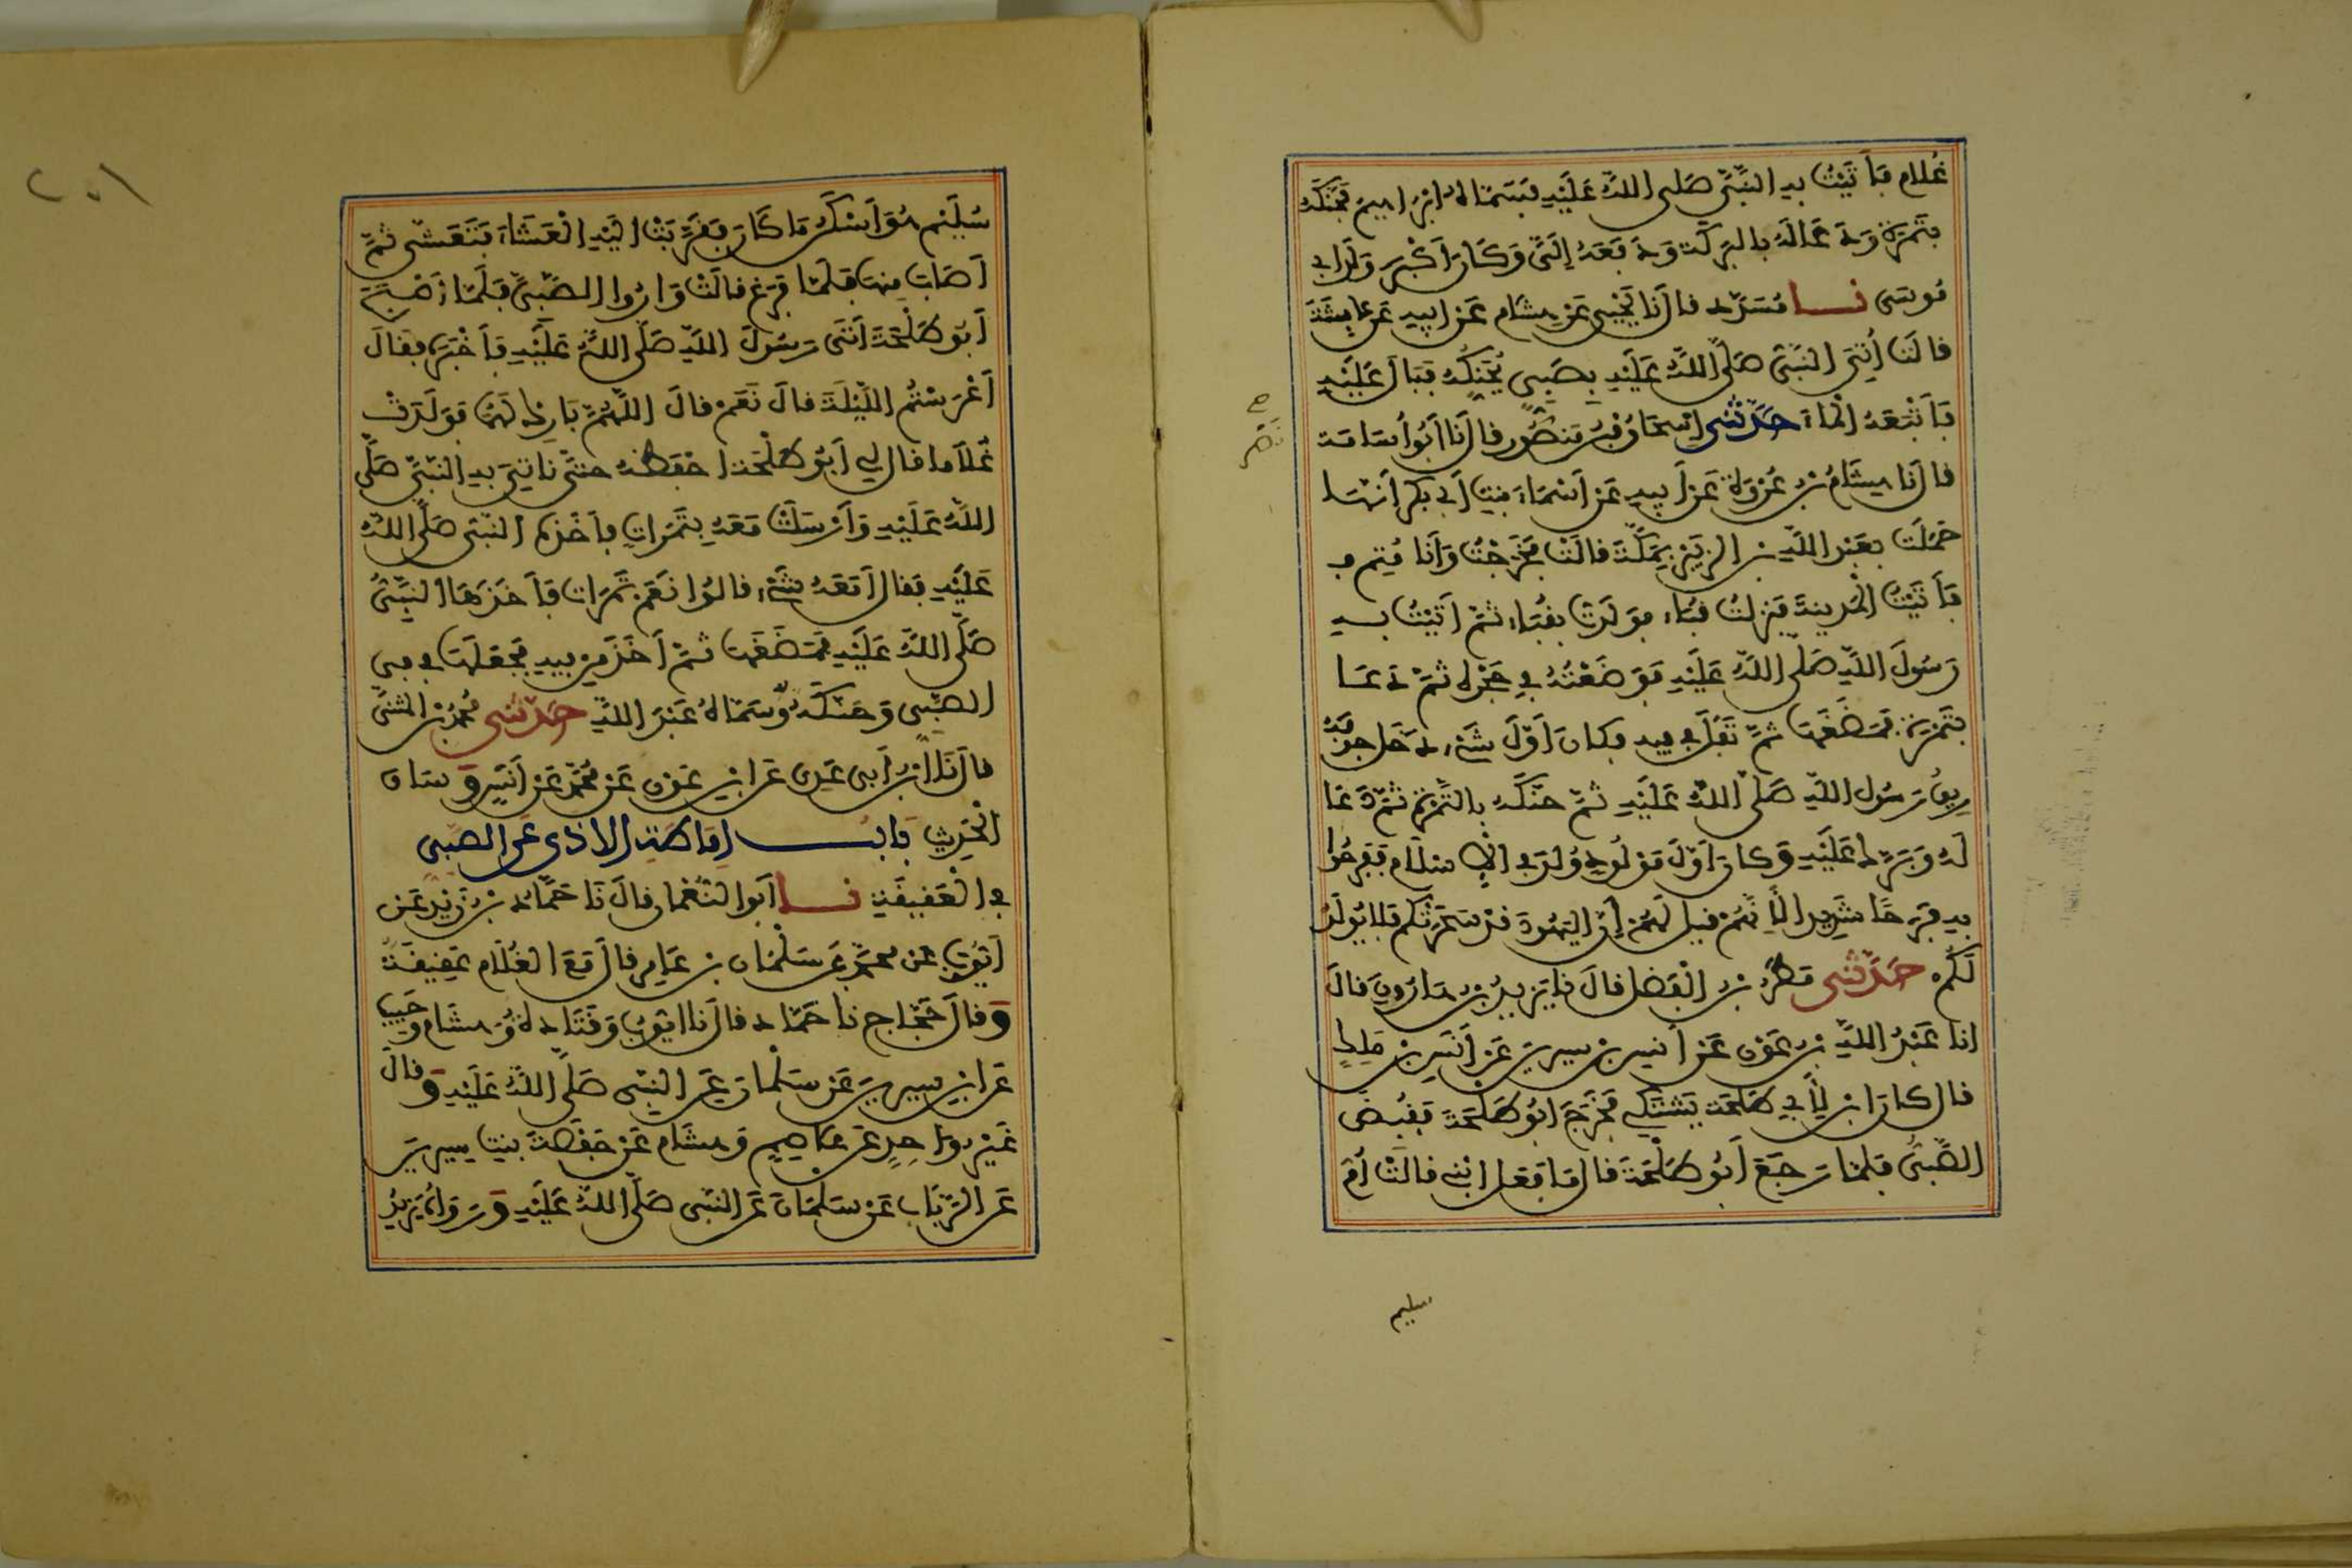 غُلام فأتيتُ به النبيَّ صلى اللهُ عليه فسماهُ ابراهيم فحنكه
بتمرة ودعا له بالبركة ودفعه إليَّ وكان أكبر ولد ابي
موسى نا مسدد قال نا يحيى عن هشام عن ابيه عن عايشة
قالت أُتي النبي صلى الله عليه بصبي يحنكه فبال عليه
فأتبعه الماء حدثني اسحاق بن منصور قال نا ابو أسامة
قال نا هشام بن عروة عن أبيه عن أسماء بنت أبي بكر أنها
حملت بعبد الله بن الزبير بمكة قالت فخرجت وأنا متم
فأتيت المدينة فنزلت قباء فولدت بقباء ثم أتيت به
رسول الله صلى الله عليه فوضعته في حجره ثم دعا
بتمرة فمضغها ثم تفل في فيه فكان أول شيء دخل جوفه
ريق رسول الله صلى الله عليه ثم حنكه بالتمرة ثم دعا
له وبرك عليه وكان أول مولود ولد في الاسلام ففرحوا
به فرحا شديدا لأنهم قيل لهم إن اليهود قد سحرتكم فلا يولد
لكم حدثني مطر بن الفضل قال نا يزيد بن هارون قال
انا عبد الله بن عون عن أنس بن سيرين عن أنس بن ملك
قال كان ابن لأبي طلحة يشتكي فخرج أبو طلحة فقبض
الصبي فلما رجع أبو طلحة قال ما فعل ابني قالت أم
سليم
سليم هو أسكن ما كان فقربت اليه العشاء فتعشى ثم
أصاب منها فلما فرغ قالت واروا الصبي فلما أصبح
أبو طلحة أتى رسول الله صلى الله عليه فأخبره فقال
أعرستم الليلة قال نعم قال اللهم بارك لهما فولدت
غلاما قال لي أبو طلحة احفظه حتى ناتي به النبي صلى
الله عليه وأرسلت معه بتمرات فأخذه النبي صلى الله
عليه فقال أمعه شيء قالوا نعم تمرات فأخذها النبي
صلى الله عليه فمضغها ثم أخذ من فيه فجعلها في في
الصبي وحنكه وسماه عبد الله حدثني محمد بن المثنى
قال نا ابن أبي عدي عن ابن عون عن محمد عن أنس وساق
الحديث باب إماطة الاذى عن الصبي
في العقيقة نا ابو النعمان قال نا حماد بن زيد عن
أيوب عن محمد عن سلمان بن عامر قال مع الغلام عقيقة
وقال حجاج نا حماد قال نا ايوب وقتادة وهشام وحبيب
عن ابن سيرين عن سلمان عن النبي صلى الله عليه وقال
غير واحد عن عاصم وهشام عن حفصة بنت سيرين
عن الرباب عن سلمان عن النبي صلى الله عليه ورواه يزيد